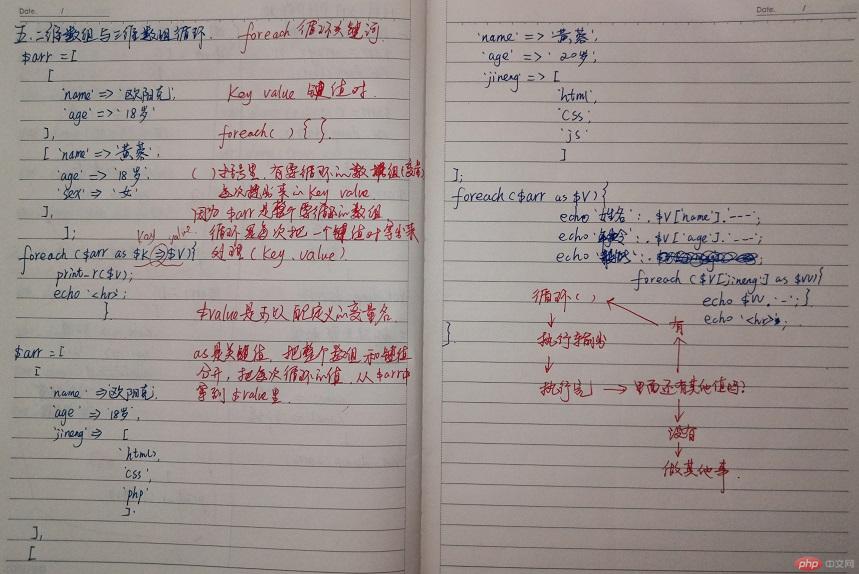 Date. /
五. 二维数组与三维数组循环. foreach 循环关键词.
$arr = [
[
'name' => '欧阳克',
'age' => '18岁'
Key value 键值对.
],
foreach( ) { }.
[ 'name' => '黄蓉',
'age' => '18岁'.
'sex' => '女'
( ) 括号里, 有要循环的数组(变量)
每次循出来的 Key value
],
因为 $arr 是整个要循环的数组
];
循环是每次把一个键值对拿出来
处理 (Key, value)
Key value
foreach ($arr as $K => $V) {
print_r($V);
echo '<hr>';
}
$value是可以自定义的变量名.
as是关键值, 把整个数组和键值
分开, 把每次循环的值, 从$arr中
拿到 $value里.
$arr = [
[
'name' => '欧阳克',
'age' => '18岁',
'jineng' => [
'html',
'css',
'php'
].
],
[
Date. /
'name' => '黄蓉',
'age' => '20岁',
'jineng' => [
'html',
'css',
'js'
]
];
foreach ($arr as $V) {
echo '姓名' : . $V['name'] . '---';
echo '年令' : . $V['age'] . '---';
echo
foreach ($V['jineng'] as $VV) {
echo $VV . '-';
echo '<hr>';
}
}
循环( )
有
执行亲输出
执行完 → 里面还有其他值吗?
没有
做其他事.
php 中文网